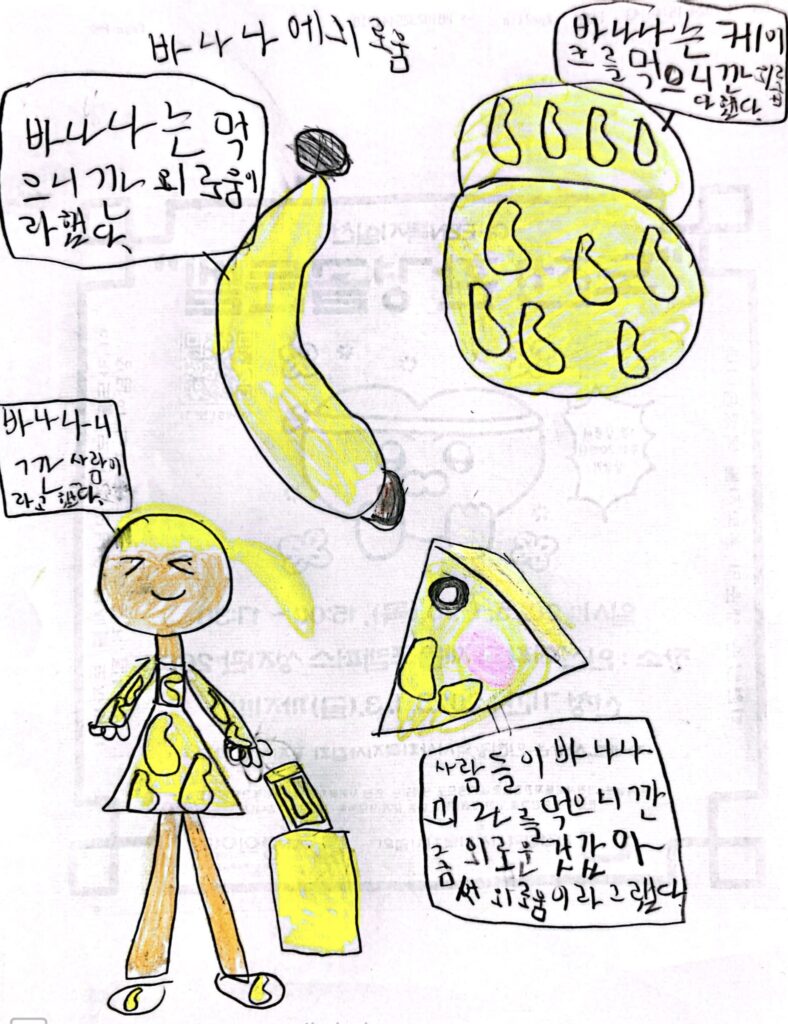 바나나에 외로움
바나나는 먹
으니 깐 외로움이
라 했다.
바나나는 케이
크를 먹으니깐 외로움
다 했다.
바나나니
ㄱ깐 사람이
라고 했다.
사람들이 바나나
피라를 먹으니깐
좀 외로운 것갔아~
써 외로움이라 그랬다